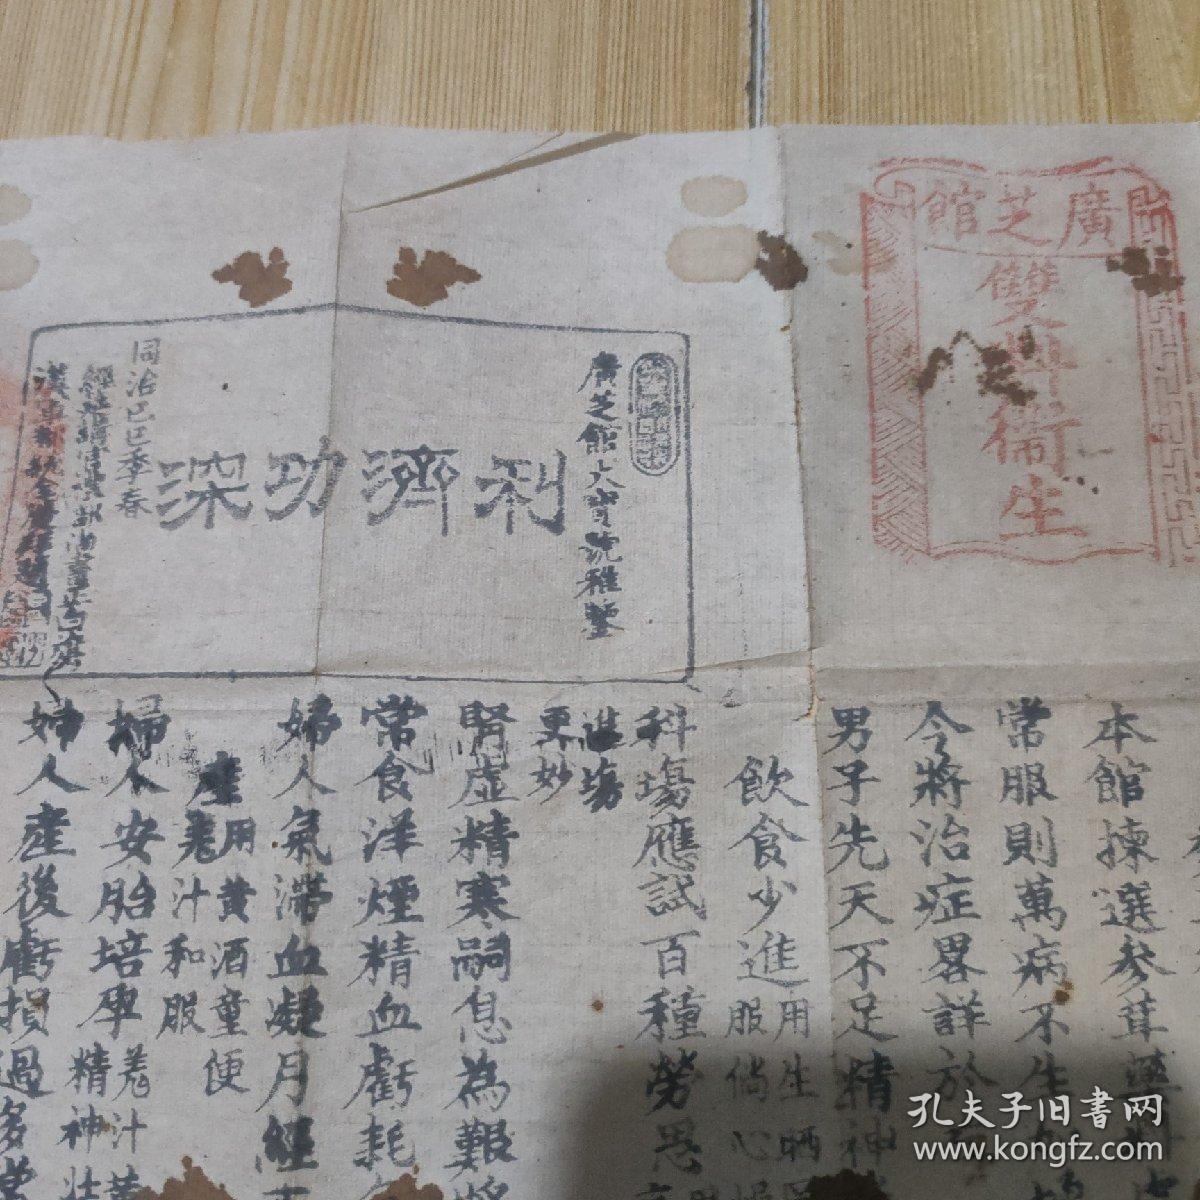 廣芝館
雙料衛生
本館揀選參茸藥料
常服則萬病不生
今將治症畧詳於
男子先天不足精神
飲食少進用生晒
服倘心
科場應試百種勞思
進場
更妙
廣芝館大寶號雅鑒
利濟功深
同治己巳季春
腎虛精寒嗣息為艱
常食洋煙精血虧耗
婦人氣滯血凝月經
產用黃酒童便
羌汁和服
婦人安胎培孕羌汁
精神壯
婦人產後虧損過多
孔夫子旧书网
www.kongfz.com